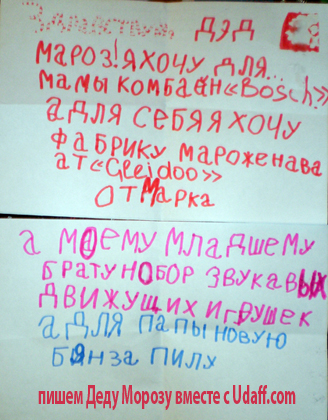 Здраствуй, ДЭД
МАРОЗ! Я ХОЧУ ДЛЯ...
МАМЫ КОМБАЙН «Bosch»
А ДЛЯ СЕБЯ Я ХОЧУ
ФАБРИКУ МАРОЖЕНАВА
АТ «Gleidoo»
ОТ МАРКА
А МОЕМУ МЛАДШЕМУ
БРАТУ НОБОР ЗВУКАВЫХ
ДВИЖУЩИХ ИГРУШЕК
А ДЛЯ ПАПЫ НОВУЮ
БЯНЗА ПИЛУ
пишем Деду Морозу вместе с Udaff.com